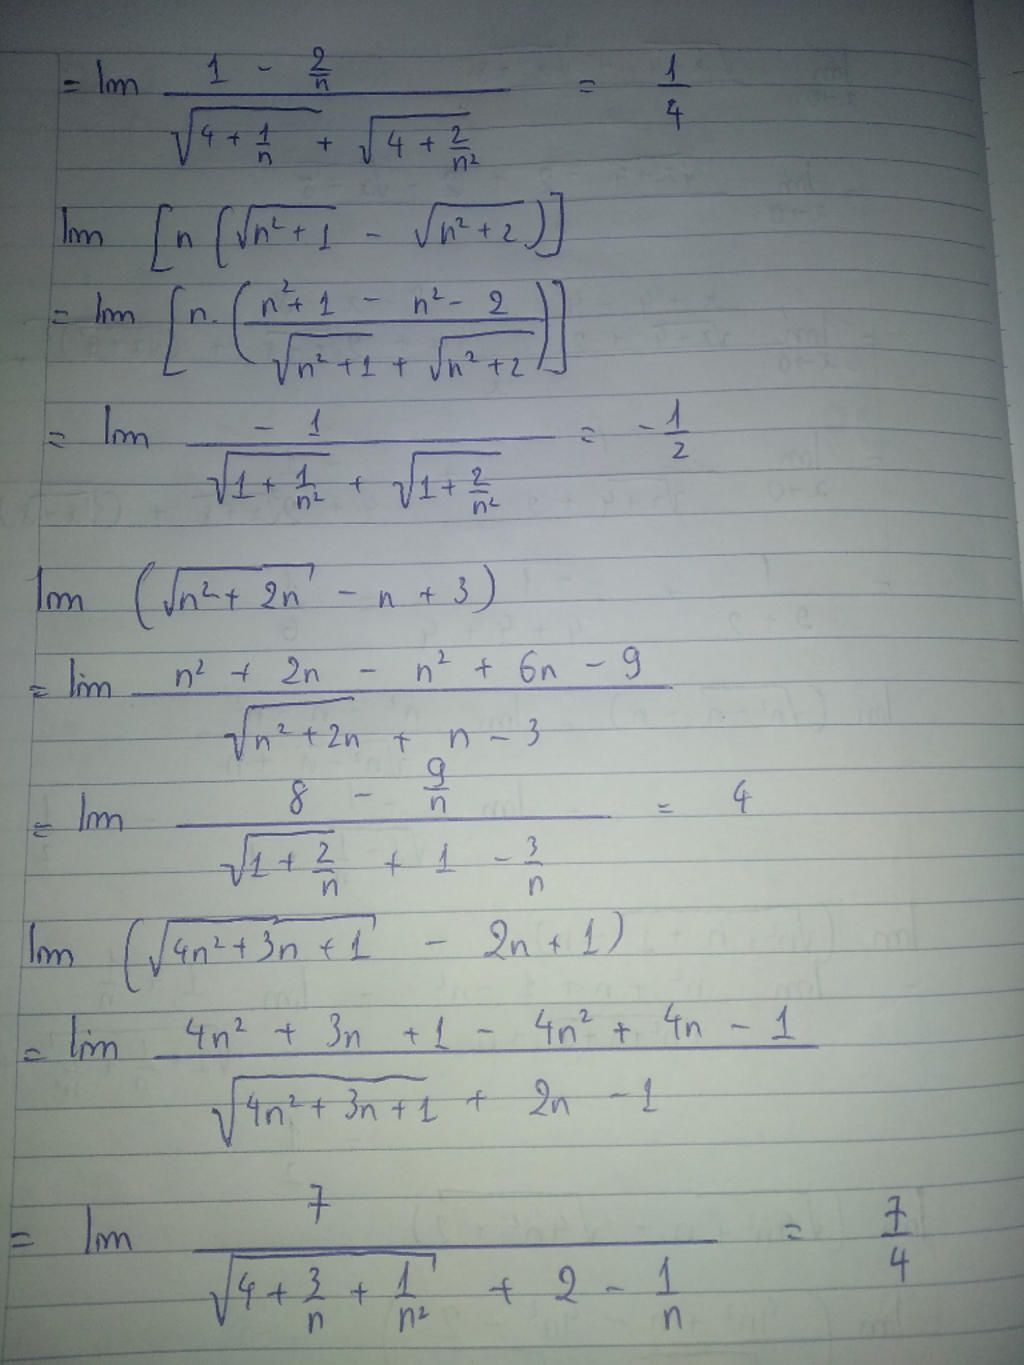 = lim (1 - 2/n) / (√(4 + 1/n) + √(4 + 2/n²)) = 1/4
lim [n (√(n² + 1) - √(n² + 2))]
= lim [n. ((n² + 1 - n² - 2) / (√(n² + 1) + √(n² + 2)))]
= lim (- 1) / (√(1 + 1/n²) + √(1 + 2/n²)) = - 1/2
lim (√(n² + 2n) - n + 3)
= lim (n² + 2n - n² + 6n - 9) / (√(n² + 2n) + n - 3)
= lim (8 - 9/n) / (√(1 + 2/n) + 1 - 3/n) = 4
lim (√(4n² + 3n + 1) - 2n + 1)
= lim (4n² + 3n + 1 - 4n² + 4n - 1) / (√(4n² + 3n + 1) + 2n - 1)
= lim 7 / (√(4 + 3/n + 1/n²) + 2 - 1/n) = 7/4